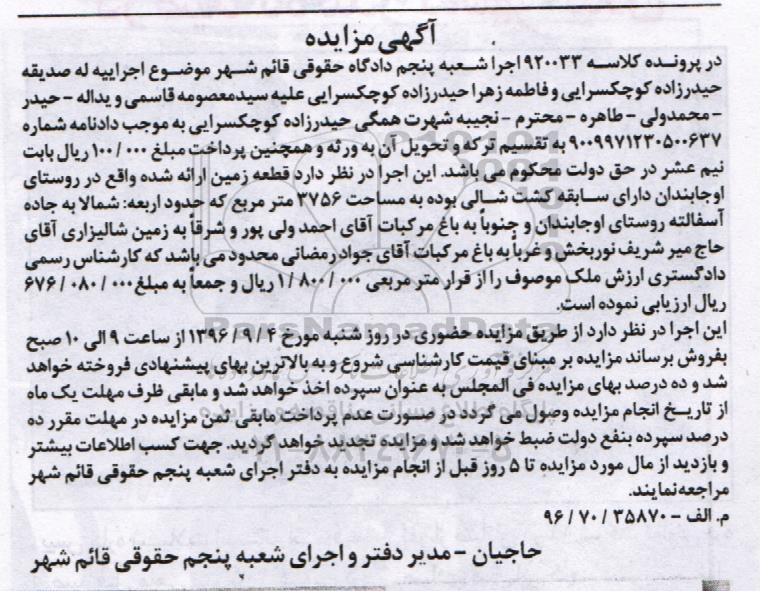 آگهی مزایده
در پرونده کلاسه ۹۲۰۰۳۳ اجرا شعبه پنجم دادگاه حقوقی قائم شهر موضوع اجراییه له صدیقه
حیدرزاده کوچکسرایی و فاطمه زهرا حیدرزاده کوچکسرایی علیه سیدمعصومه قاسمی و یداله - حیدر
- محمدولی - طاهره - محترم - نجیبه شهرت همگی حیدرزاده کوچکسرایی به موجب دادنامه شماره
۹۰۰۹۹۷۱۲۳۰۵۰۰۶۳۷ به تقسیم ترکه و تحویل آن به ورثه و همچنین پرداخت مبلغ ۱۰۰/۰۰۰ ریال بابت
نیم عشر در حق دولت محکوم می باشد. این اجرا در نظر دارد قطعه زمین ارائه شده واقع در روستای
اوجابندان دارای سابقه کشت شالی بوده به مساحت ۳۷۵۶ متر مربع که حدود اربعه: شمالا به جاده
آسفالته روستای اوجابندان و جنوباً به باغ مرکبات آقای احمد ولی پور و شرقاً به زمین شالیزاری آقای
حاج میر شریف نوربخش و غرباً به باغ مرکبات آقای جواد رمضانی محدود می باشد که کارشناس رسمی
دادگستری ارزش ملک موصوف را از قرار متر مربعی ۱/۸۰۰/۰۰۰ ریال و جمعاً به مبلغ ۶۷۶/۰۸۰/۰۰۰
ریال ارزیابی نموده است.
این اجرا در نظر دارد از طریق مزایده حضوری در روز شنبه مورخ ۱۳۹۶/۹/۴ از ساعت ۹ الی ۱۰ صبح
بفروش برساند مزایده بر مبنای قیمت کارشناسی شروع و به بالاترین بهای پیشنهادی فروخته خواهد
شد و ده درصد بهای مزایده فی المجلس به عنوان سپرده اخذ خواهد شد و مابقی ظرف مهلت یک ماه
از تاریخ انجام مزایده وصول می گردد در صورت عدم پرداخت مابقی ثمن مزایده در مهلت مقرر ده
درصد سپرده بنفع دولت ضبط خواهد شد و مزایده تجدید خواهد گردید. جهت کسب اطلاعات بیشتر
و بازدید از مال مورد مزایده تا ۵ روز قبل از انجام مزایده به دفتر اجرای شعبه پنجم حقوقی قائم شهر
مراجعه نمایند.
م. الف - ۹۶/۷۰/۳۵۸۷۰
حاجیان - مدیر دفتر و اجرای شعبه پنجم حقوقی قائم شهر
ParsNamadData